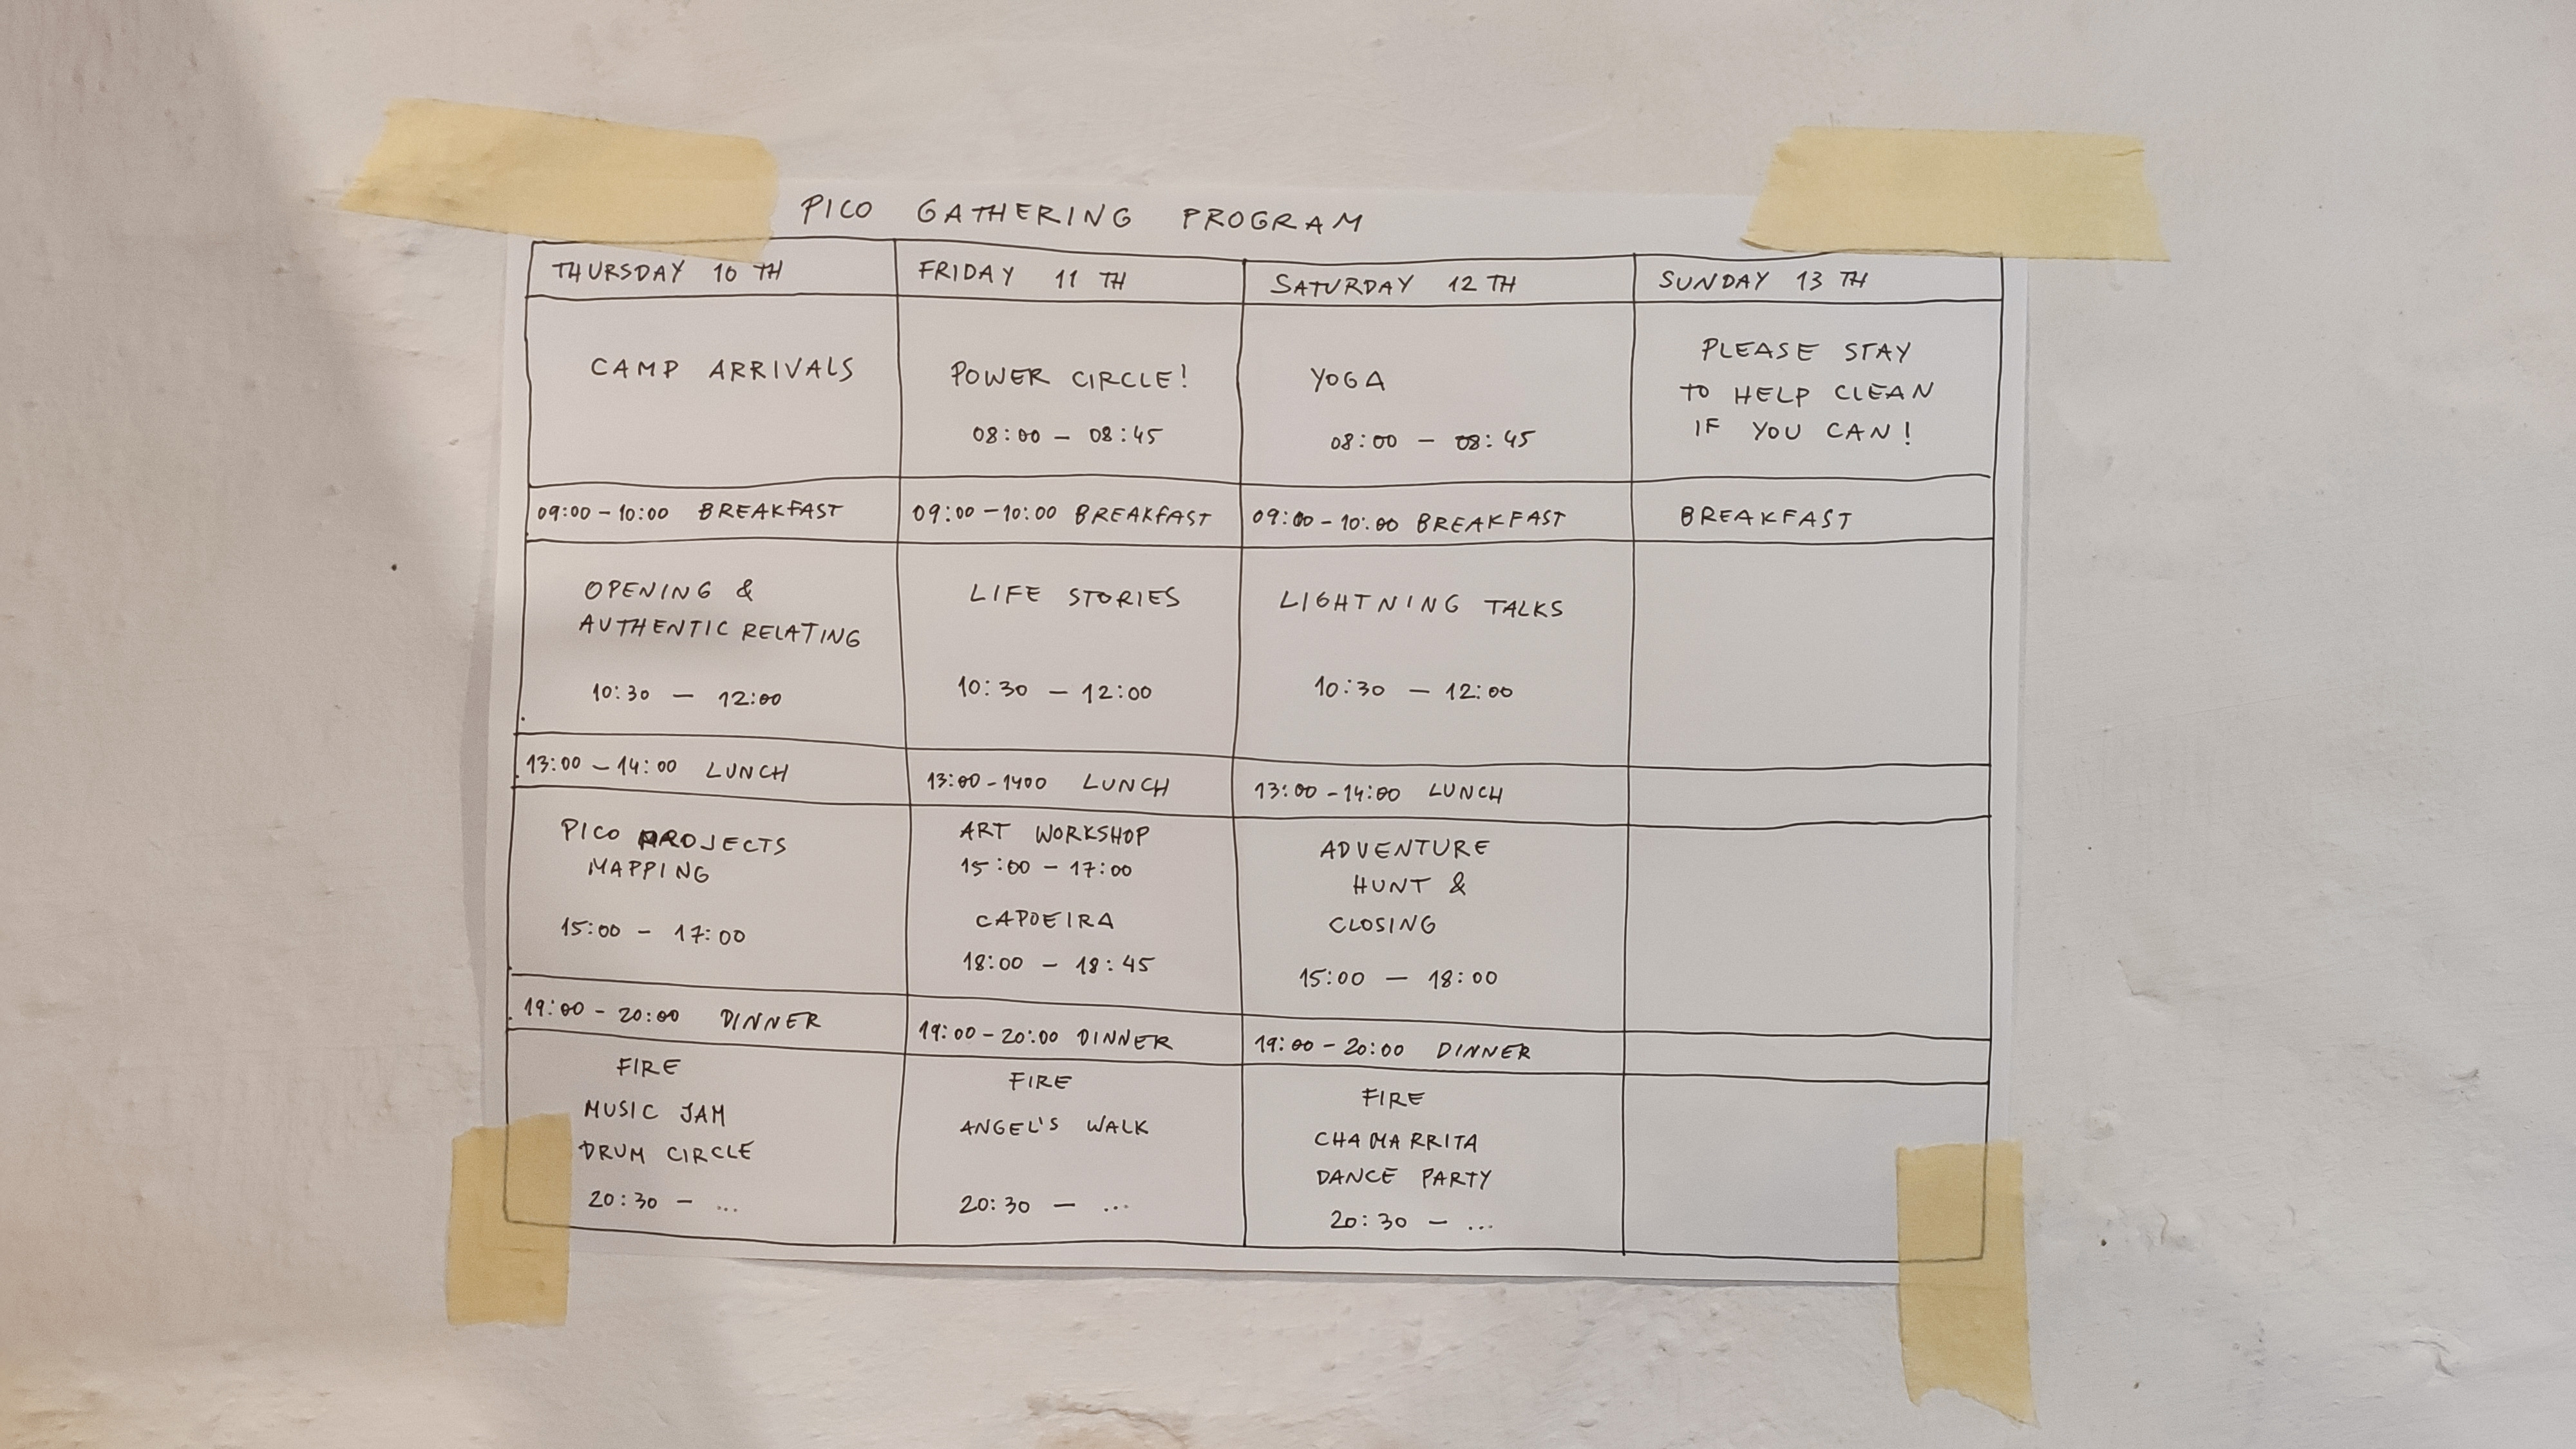 PICO GATHERING PROGRAM
THURSDAY 10 TH
FRIDAY 11 TH
SATURDAY 12 TH
SUNDAY 13 TH
CAMP ARRIVALS
POWER CIRCLE!
08:00 – 08:45
YOGA
08:00 – 08:45
PLEASE STAY
TO HELP CLEAN
IF YOU CAN!
09:00 – 10:00 BREAKFAST
09:00 – 10:00 BREAKFAST
09:00 – 10:00 BREAKFAST
BREAKFAST
OPENING &
AUTHENTIC RELATING
10:30 – 12:00
LIFE STORIES
10:30 – 12:00
LIGHTNING TALKS
10:30 – 12:00
13:00 – 14:00 LUNCH
13:00 – 1400 LUNCH
13:00 – 14:00 LUNCH
PICO PROJECTS
MAPPING
15:00 – 17:00
ART WORKSHOP
15:00 – 17:00
CAPOEIRA
18:00 – 18:45
ADVENTURE
HUNT &
CLOSING
15:00 – 18:00
19:00 – 20:00 DINNER
19:00 – 20:00 DINNER
19:00 – 20:00 DINNER
FIRE
MUSIC JAM
DRUM CIRCLE
20:30 – ...
FIRE
ANGEL'S WALK
20:30 – ...
FIRE
CHAMARRITA
DANCE PARTY
20:30 – ...